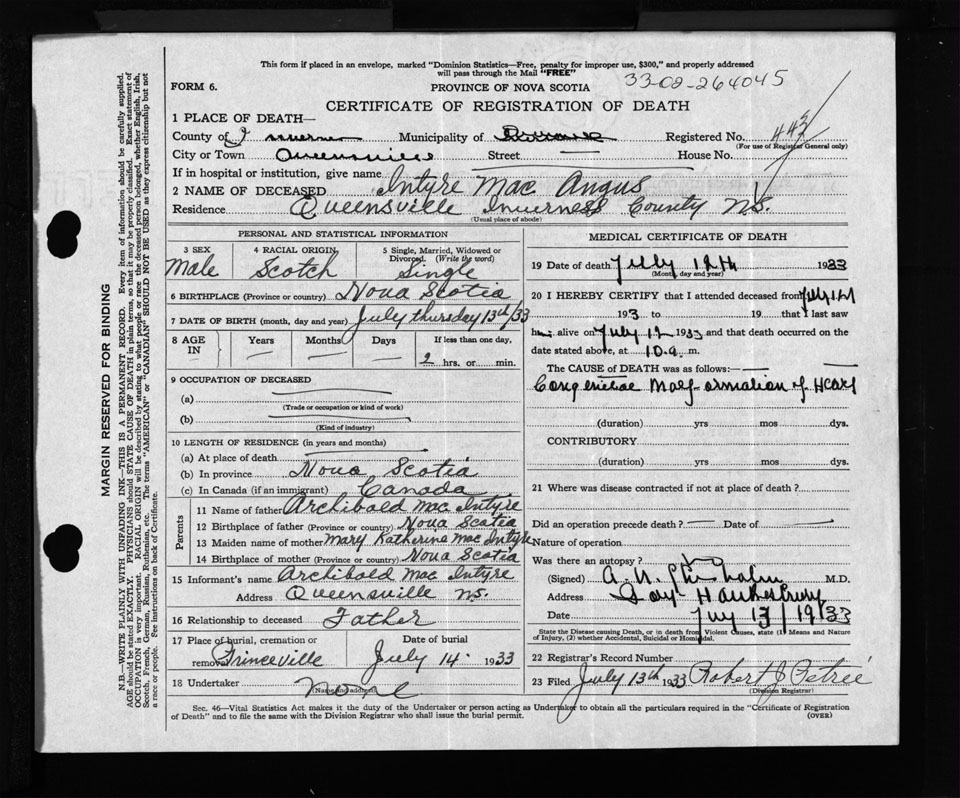 This form if placed in an envelope, marked "Dominion Statistics—Free, penalty for improper use, $300," and properly addressed
will pass through the Mail "FREE"
33-02-264045
FORM 6.
PROVINCE OF NOVA SCOTIA
CERTIFICATE OF REGISTRATION OF DEATH
1 PLACE OF DEATH—
County of Inverness Municipality of Registered No. 443
(For use of Registrar General only)
City or Town Queensville Street — House No.
If in hospital or institution, give name
2 NAME OF DECEASED Intyre Mac Angus
Residence Queensville Inverness County N.S.
(Usual place of abode)
PERSONAL AND STATISTICAL INFORMATION
3 SEX Male
4 RACIAL ORIGIN Scotch
5 Single, Married, Widowed or Divorced. (Write the word) Single
6 BIRTHPLACE (Province or country) Nova Scotia
7 DATE OF BIRTH (month, day and year) July thursday 13th/33
8 AGE IN Years Months Days If less than one day, 2 hrs. or min.
9 OCCUPATION OF DECEASED
(a)
(Trade or occupation or kind of work)
(b)
(Kind of industry)
10 LENGTH OF RESIDENCE (in years and months)
(a) At place of death
(b) In province Nova Scotia
(c) In Canada (if an immigrant) Canada
Parents
11 Name of father Archibald Mac Intyre
12 Birthplace of father (Province or country) Nova Scotia
13 Maiden name of mother Mary Katherine Mac Intyre
14 Birthplace of mother (Province or country) Nova Scotia
15 Informant's name Archibald Mac Intyre
Address Queensville N.S.
16 Relationship to deceased Father
17 Place of burial, cremation or removal Princeville
Date of burial July 14 1933
18 Undertaker None
(Name and address)
MEDICAL CERTIFICATE OF DEATH
19 Date of death July 12th 1933
(Month, day and year)
20 I HEREBY CERTIFY that I attended deceased from July 12
193 to 19 that I last saw
him alive on July 12 1933 and that death occurred on
date stated above, at 10 a. m.
The CAUSE OF DEATH was as follows:
Congenital Malformation of Heart
(duration) yrs mos dys.
CONTRIBUTORY
(duration) yrs. mos dys.
21 Where was disease contracted if not at place of death?
Did an operation precede death? — Date of —
Nature of operation
Was there an autopsy?
(Signed) M.D.
Address Hawkesbury
Date July 13/1933
State the Disease causing Death, or in death from Violent Causes, state (1) Means and Nature
of Injury, (2) whether Accidental, Suicidal or Homicidal.
22 Registrar's Record Number
23 Filed July 13th 1933 Robert J Petrie
(Division Registrar)
Sec. 46—Vital Statistics Act makes it the duty of the Undertaker or person acting as Undertaker to obtain all the particulars required in the "Certificate of Registration
of Death" and to file the same with the Division Registrar who shall issue the burial permit.
(OVER)
MARGIN RESERVED FOR BINDING
N.B.—WRITE PLAINLY WITH UNFADING INK—THIS IS A PERMANENT RECORD. Every item of information should be carefully supplied.
AGE should be stated EXACTLY. PHYSICIANS should STATE CAUSE OF DEATH in plain terms, so that it may be properly classified. Exact statement of
OCCUPATION is very important. RACIAL ORIGIN will be described by stating to what people or race the deceased person belonged, whether English, Irish,
Scotch, French, German, Russian, Ruthenian, etc. The terms "AMERICAN" or "CANADIAN" SHOULD NOT BE USED as they express citizenship but not
a race or people. See instructions on back of Certificate.